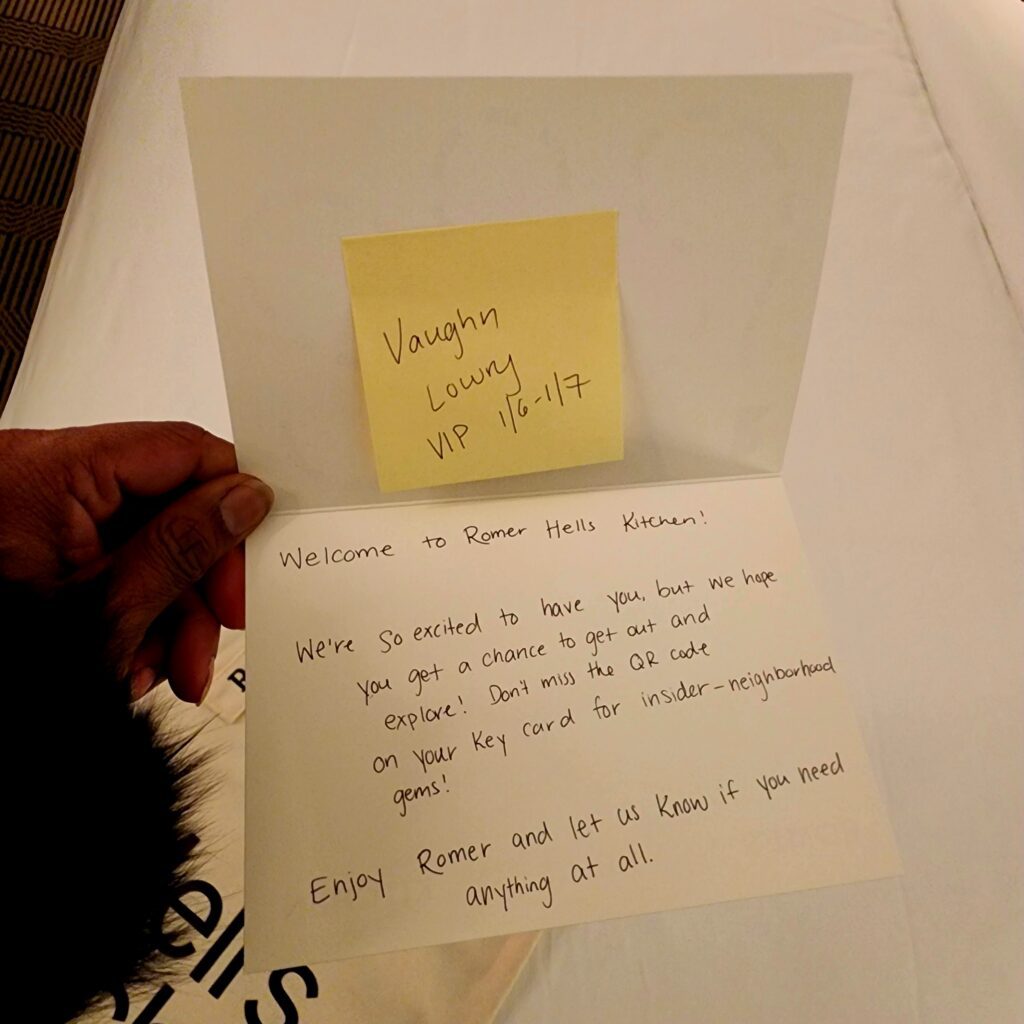 Vaughn
Lowry
VIP 1/6-1/7
Welcome to Romer Hells Kitchen!
We're so excited to have you, but we hope
you get a chance to get out and
explore! Don't miss the QR code
on your key card for insider-neighborhood
gems!
Enjoy Romer and let us know if you need
anything at all.
R
ells